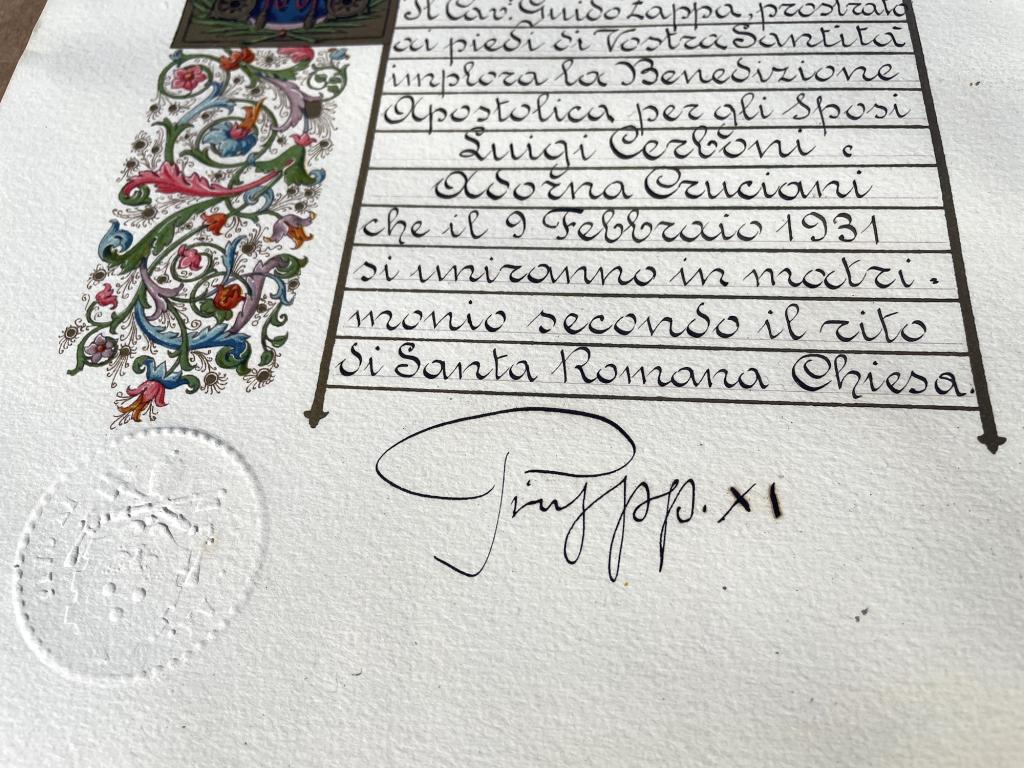 Il Cav.r Guido Zappa, prostrato
ai piedi di Vostra Santità
implora la Benedizione
Apostolica per gli Sposi
Luigi Cerboni e
Adorna Cruciani
che il 9 Febbraio 1931
si uniranno in matri-
monio secondo il rito
di Santa Romana Chiesa.
Pius pp. XI